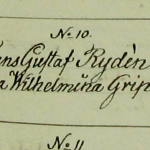 No 10.
ens Gustaf Rydèn
a Wilhelmina Grip
No 11